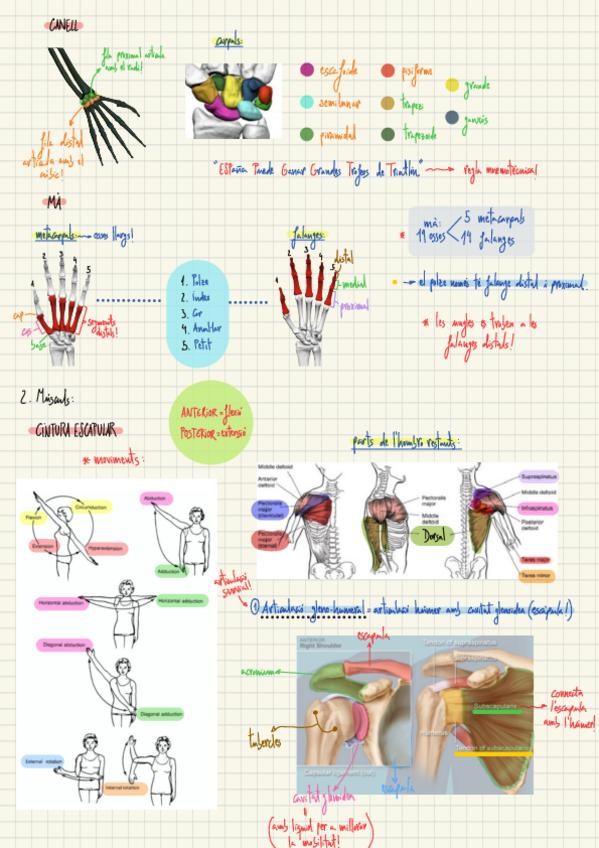 CANELL
fila proximal articula
amb el radi!
carpals:
escafoide
semilunar
piramidal
pisiforme
trapezi
trapezoide
grande
fila distal
articula amb el
"ESpaña Puede Ganar Grandes Trofeos de Triatlón" → regla mnemotècnica!
MÀ
metacarpals → ossos llargs!
falanges:
* mà:
19 ossos
5 metacarpals
14 falanges
1 2 3 4 5
cap
cos
base
segments
distals!
1. Polze
2. Índex
3. Cor
4. Anular
5. Petit
1 2 3 4 5
distal
medial
proximal
→ el polze només té falange distal i proximal.
* les ungles es troben a les
falanges distals!
2. Músculs:
CINTURA ESCAPULAR
ANTERIOR = flexió
POSTERIOR = extensió
* moviments:
parts de l'hombro restants:
Flexion
Circumduction
Extension
Hyperextension
Abduction
Adduction
Horizontal abduction
Horizontal adduction
Diagonal abduction
Diagonal adduction
External rotation
Internal rotation
Middle deltoid
Anterior deltoid
Pectoralis major (clavicular)
Pectoralis major (sternal)
Pectoralis major
Middle deltoid
Dorsal
Supraspinatus
Middle deltoid
Infraspinatus
Posterior deltoid
Teres major
Teres minor
articulació
① Articulació gleno-humeral = articulació húmer amb cavitat glenoidea (escàpula!)
ANTERIOR
Right Shoulder
escapula
acromion
tubercles
Capsular ligament (cut)
cavitat glenoidea
(amb líquid per a millorar
la mobilitat!)
escapula
Tendon of supraspinatus
Supraspinatus
Subscapularis
Humerus
Tendon of subscapularis
connecta
l'escapula
amb l'húmer!